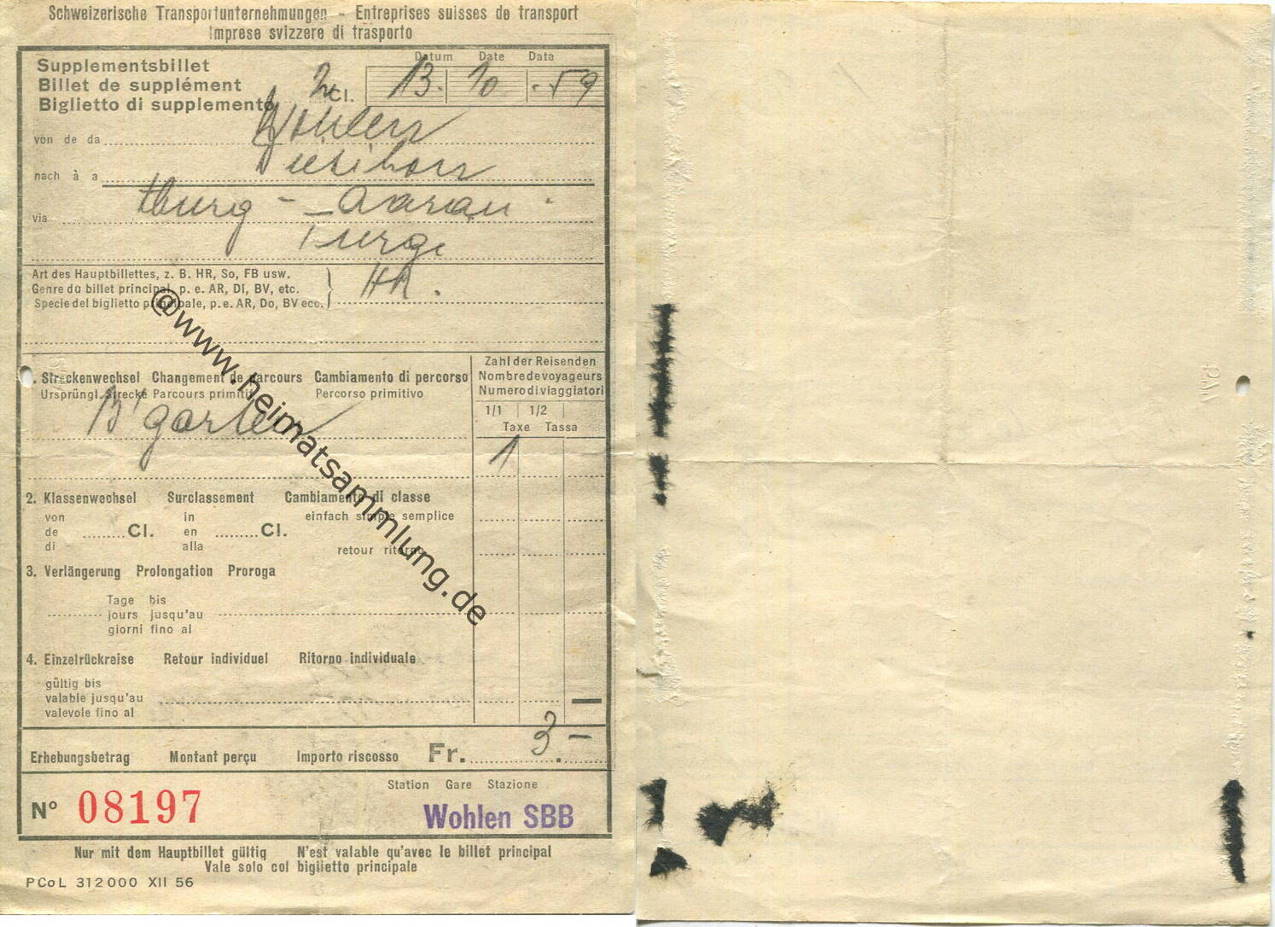 Schweizerische Transportunternehmungen - Entreprises suisses de transport
Imprese svizzere di trasporto
Supplementsbillet
Billet de supplément
Biglietto di supplemento
2 Cl.
Datum Date Data
13. 10. 59
von de da Wohlen
nach à a
via - Aarau
Turgi
Art des Hauptbillettes, z. B. HR, So, FB usw.
Genre du billet principal, p. e. AR, Di, BV, etc.
Specie del biglietto principale, p. e. AR, Do, BV ecc.
HR.
1. Streckenwechsel Changement de parcours Cambiamento di percorso
Ursprüngl. Strecke Parcours primitif Percorso primitivo
B'garten
Zahl der Reisenden
Nombre de voyageurs
Numero di viaggiatori
1/1 1/2
Taxe Tassa
1
2. Klassenwechsel Surclassement Cambiamento di classe
von in einfach simple semplice
de ........ Cl. en ......... Cl.
di alla retour ritorno
3. Verlängerung Prolongation Proroga
Tage bis
jours jusqu'au
giorni fino al
4. Einzelrückreise Retour individuel Ritorno individuale
gültig bis
valable jusqu'au
valevole fino al
Erhebungsbetrag Montant perçu Importo riscosso Fr. 3.-
Station Gare Stazione
N° 08197
Wohlen SBB
Nur mit dem Hauptbillet gültig N'est valable qu'avec le billet principal
Vale solo col biglietto principale
PCoL 312000 XII 56
@www.heimatsammlung.de